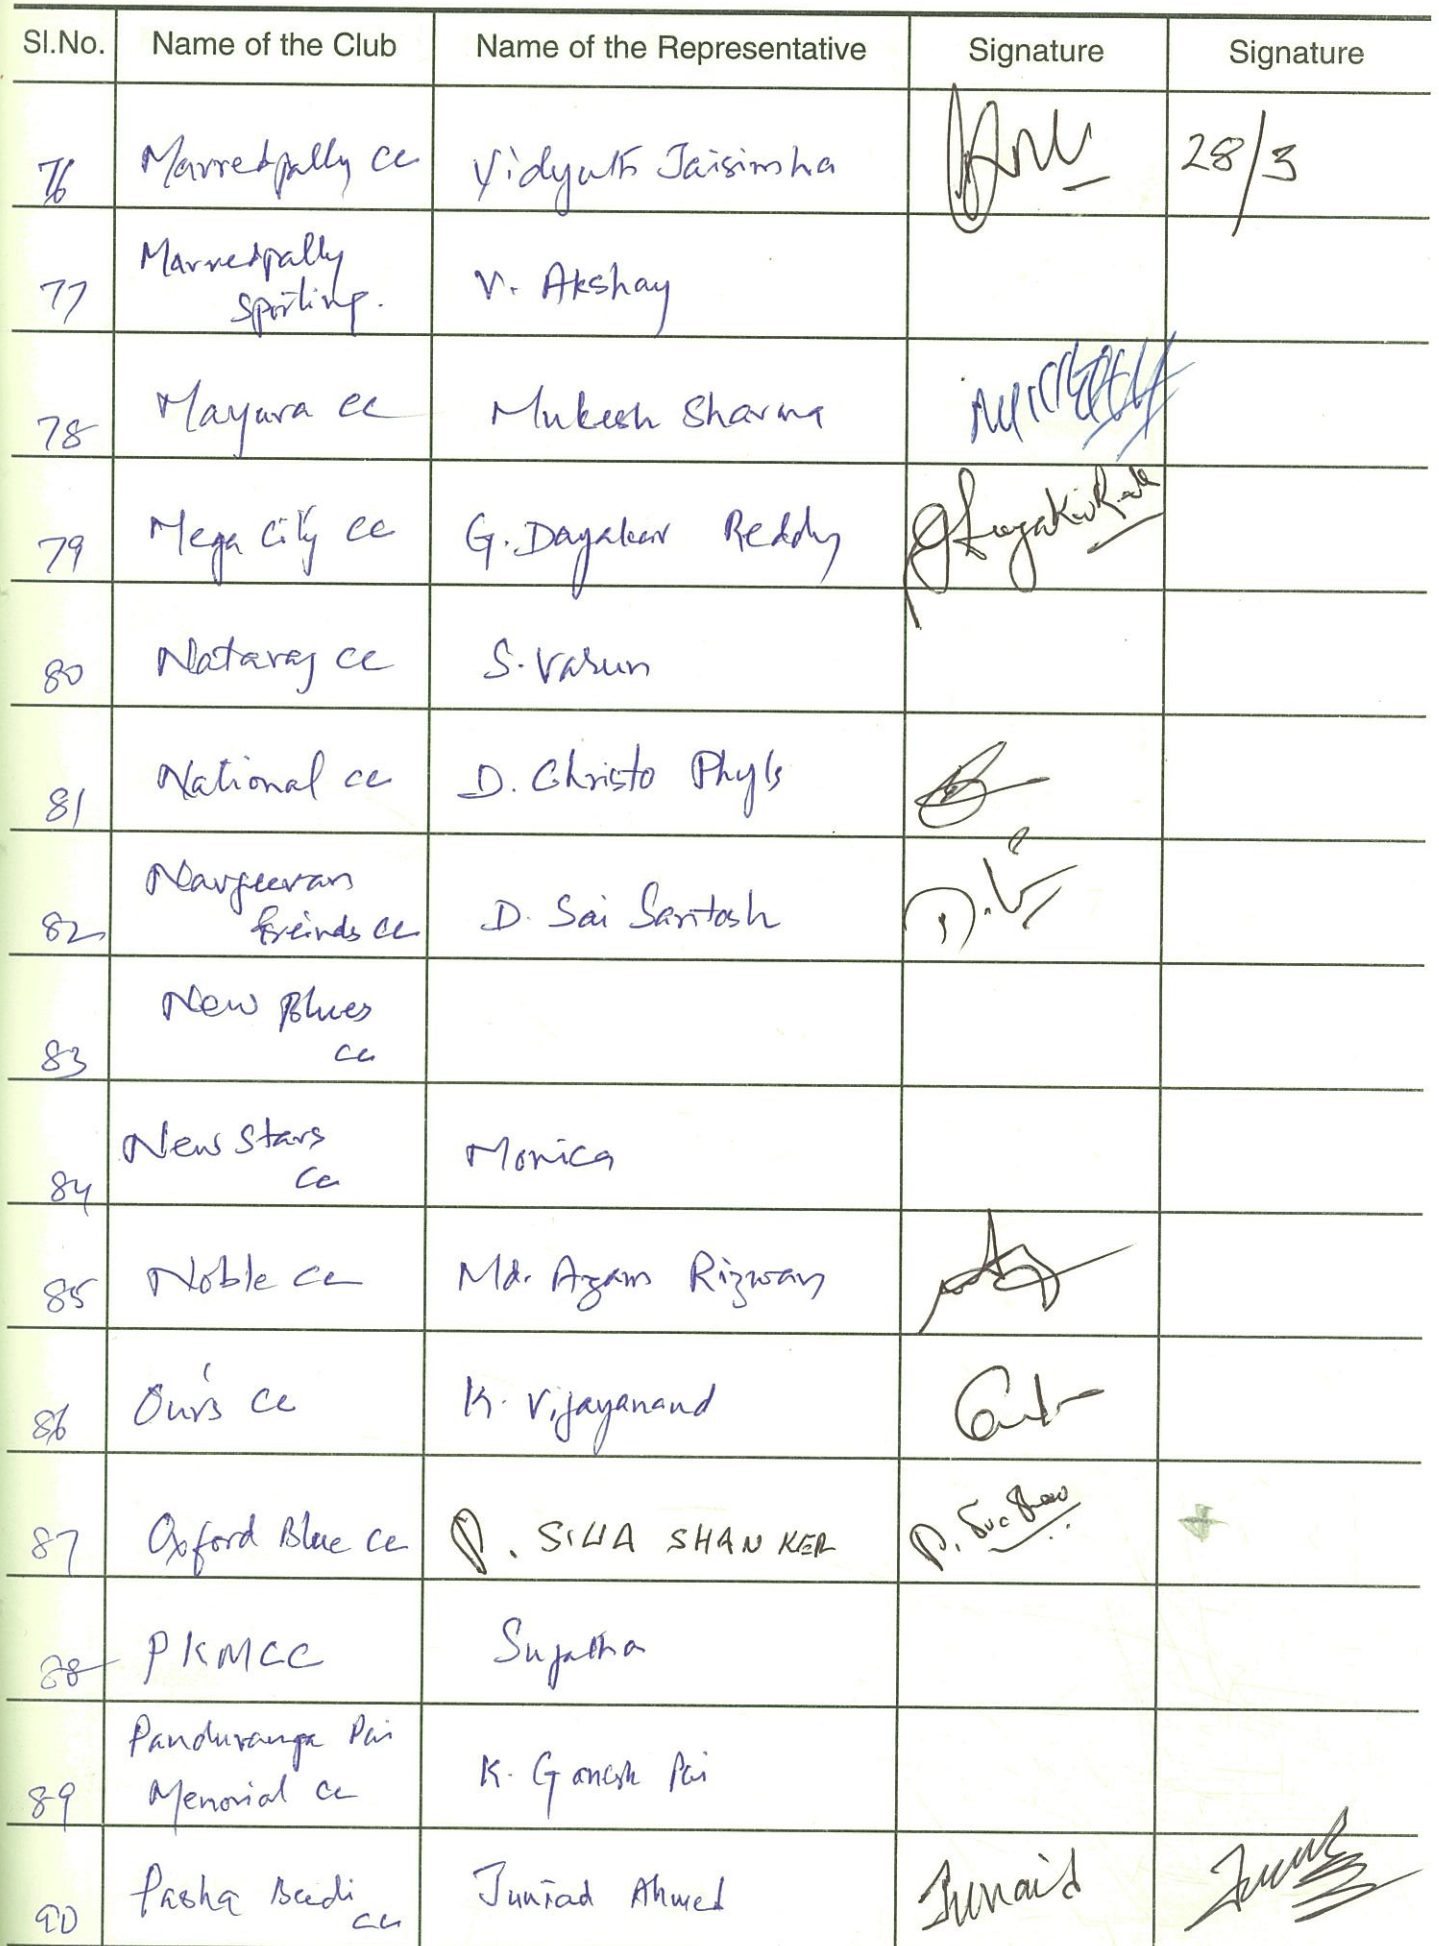 Sl.No. Name of the Club Name of the Representative Signature Signature
76 Marredpally cc Vidyuth Jaisimha 28/3
Marredpally
77 Sporting. V. Akshay
78 Mayura cc Mukesh Sharma
79 Mega City cc G. Dayakar Reddy
80 Nataraj cc S. Varun
81 National cc D. Christo Phyls
Navjeevan
82 freinds cc D. Sai Santosh
New Blues
83 cc
New Stars
84 cc Monica
85 Noble cc Md. Azam Rizwan
86 Our's cc K. Vijayanand
87 Oxford Blue cc P. SIVA SHANKER
88 PKMCC Sujatha
Panduranga Pai
89 Memorial cc K. Ganesh Pai
Pasha Beedi Juniad Ahmed Junaid
90 cc